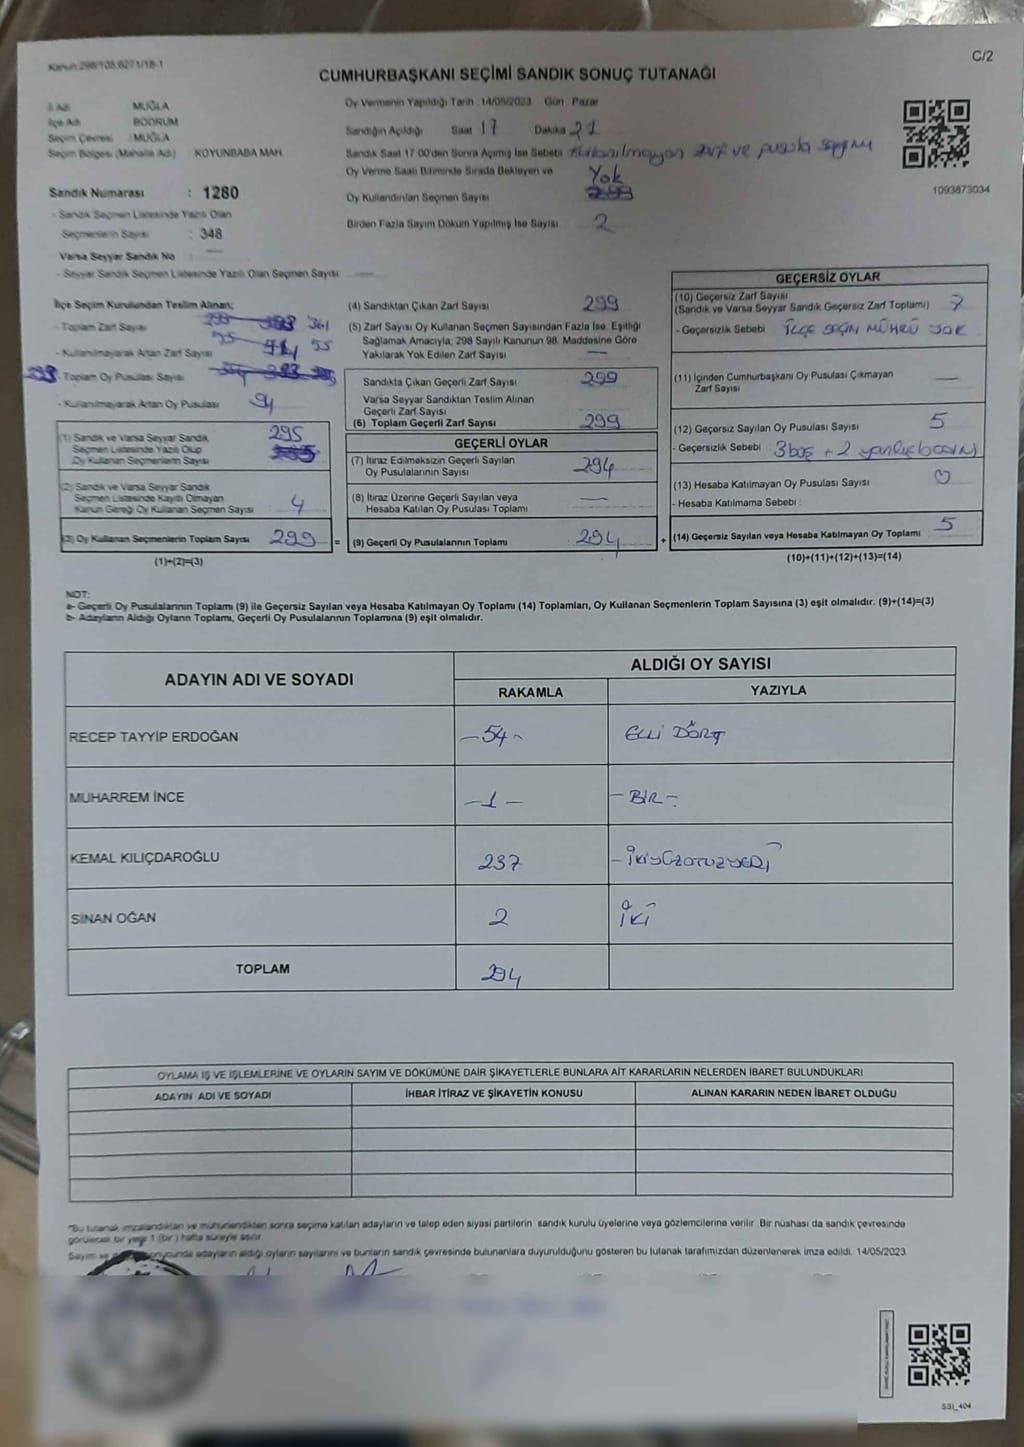 Kanun 298/105,6271/18-1
C/2
CUMHURBAŞKANI SEÇİMİ SANDIK SONUÇ TUTANAĞI
İl Adı MUĞLA
İlçe Adı BODRUM
Seçim Çevresi : MUĞLA
Seçim Bölgesi (Mahalle Adı) KOYUNBABA MAH
Oy Vermenin Yapıldığı Tarih 14/05/2023 Gün Pazar
Sandığın Açıldığı Saat 17 Dakika 21
Sandık Saat 17:00'den Sonra Açımış İse Sebebi Kullanılmayan zarf ve pusula sayımı
Oy Verme Saati Bitiminde Sırada Bekleyen ve Yok
Oy Kullandırılan Seçmen Sayısı 299
Birden Fazla Sayım Döküm Yapılmış İse Sayısı 2
1093873034
Sandık Numarası : 1280
- Sandık Seçmen Listesinde Yazılı Olan
Seçmenlerin Sayısı : 348
Varsa Seyyar Sandık No
- Seyyar Sandık Seçmen Listesinde Yazılı Olan Seçmen Sayısı
İlçe Seçim Kurulundan Teslim Alınan;
- Toplam Zarf Sayısı 361
- Kullanılmayarak Artan Zarf Sayısı 55
- Toplam Oy Pusulası Sayısı
- Kullanılmayarak Artan Oy Pusulası 94
(1) Sandık ve Varsa Seyyar Sandık
Seçmen Listesinde Yazılı Olup
Oy Kullanan Seçmenlerin Sayısı 295
(2) Sandık ve Varsa Seyyar Sandık
Seçmen Listesinde Kayıtlı Olmayan
Kanun Gereği Oy Kullanan Seçmen Sayısı 4
(3) Oy Kullanan Seçmenlerin Toplam Sayısı 299 =
(1)+(2)=(3)
(4) Sandıktan Çıkan Zarf Sayısı 299
(5) Zarf Sayısı Oy Kullanan Seçmen Sayısından Fazla İse. Eşitliği
Sağlamak Amacıyla, 298 Sayılı Kanunun 98. Maddesine Göre
Yakılarak Yok Edilen Zarf Sayısı —
Sandıkta Çıkan Geçerli Zarf Sayısı 299
Varsa Seyyar Sandıktan Teslim Alınan
Geçerli Zarf Sayısı
(6) Toplam Geçerli Zarf Sayısı 299
GEÇERLİ OYLAR
(7) İtiraz Edilmeksizin Geçerli Sayılan
Oy Pusulalarının Sayısı 294
(8) İtiraz Üzerine Geçerli Sayılan veya
Hesaba Katılan Oy Pusulası Toplamı —
(9) Geçerli Oy Pusulalarının Toplamı 294 +
GEÇERSİZ OYLAR
(10) Geçersiz Zarf Sayısı
(Sandık ve Varsa Seyyar Sandık Geçersiz Zarf Toplamı) 7
- Geçersizlik Sebebi İLÇE SEÇİM MÜHRÜ YOK
(11) İçinden Cumhurbaşkanı Oy Pusulası Çıkmayan
Zarf Sayısı —
(12) Geçersiz Sayılan Oy Pusulası Sayısı 5
- Geçersizlik Sebebi 3 boş + 2 yanlış basım
(13) Hesaba Katılmayan Oy Pusulası Sayısı 0
- Hesaba Katılmama Sebebi :
(14) Geçersiz Sayılan veya Hesaba Katılmayan Oy Toplamı 5
(10)+(11)+(12)+(13)=(14)
NOT:
a- Geçerli Oy Pusulalarının Toplamı (9) ile Geçersiz Sayılan veya Hesaba Katılmayan Oy Toplamı (14) Toplamları, Oy Kullanan Seçmenlerin Toplam Sayısına (3) eşit olmalıdır. (9)+(14)=(3)
b- Adayların Aldığı Oyların Toplamı, Geçerli Oy Pusulalarının Toplamına (9) eşit olmalıdır.
ADAYIN ADI VE SOYADI
ALDIĞI OY SAYISI
RAKAMLA YAZIYLA
RECEP TAYYİP ERDOĞAN —54— ELLİ DÖRT
MUHARREM İNCE —1— —BİR—
KEMAL KILIÇDAROĞLU 237 —İKİYÜZOTUZYEDİ
SİNAN OĞAN 2 İKİ
TOPLAM 294
OYLAMA İŞ VE İŞLEMLERİNE VE OYLARIN SAYIM VE DÖKÜMÜNE DAİR ŞİKAYETLERLE BUNLARA AİT KARARLARIN NELERDEN İBARET BULUNDUKLARI
ADAYIN ADI VE SOYADI İHBAR İTİRAZ VE ŞİKAYETİN KONUSU ALINAN KARARIN NEDEN İBARET OLDUĞU
*Bu tutanak imzalandıktan ve mühürlendikten sonra seçime katılan adayların ve talep eden siyasi partilerin sandık kurulu üyelerine veya gözlemcilerine verilir. Bir nüshası da sandık çevresinde
görülecek bir yere 1 (bir) hafta süreyle asılır.
Sayım ve sonucunda adayların aldığı oyların sayılarını ve bunların sandık çevresinde bulunanlara duyurulduğunu gösteren bu tutanak tarafımızdan düzenlenerek imza edildi. 14/05/2023
SSI_404